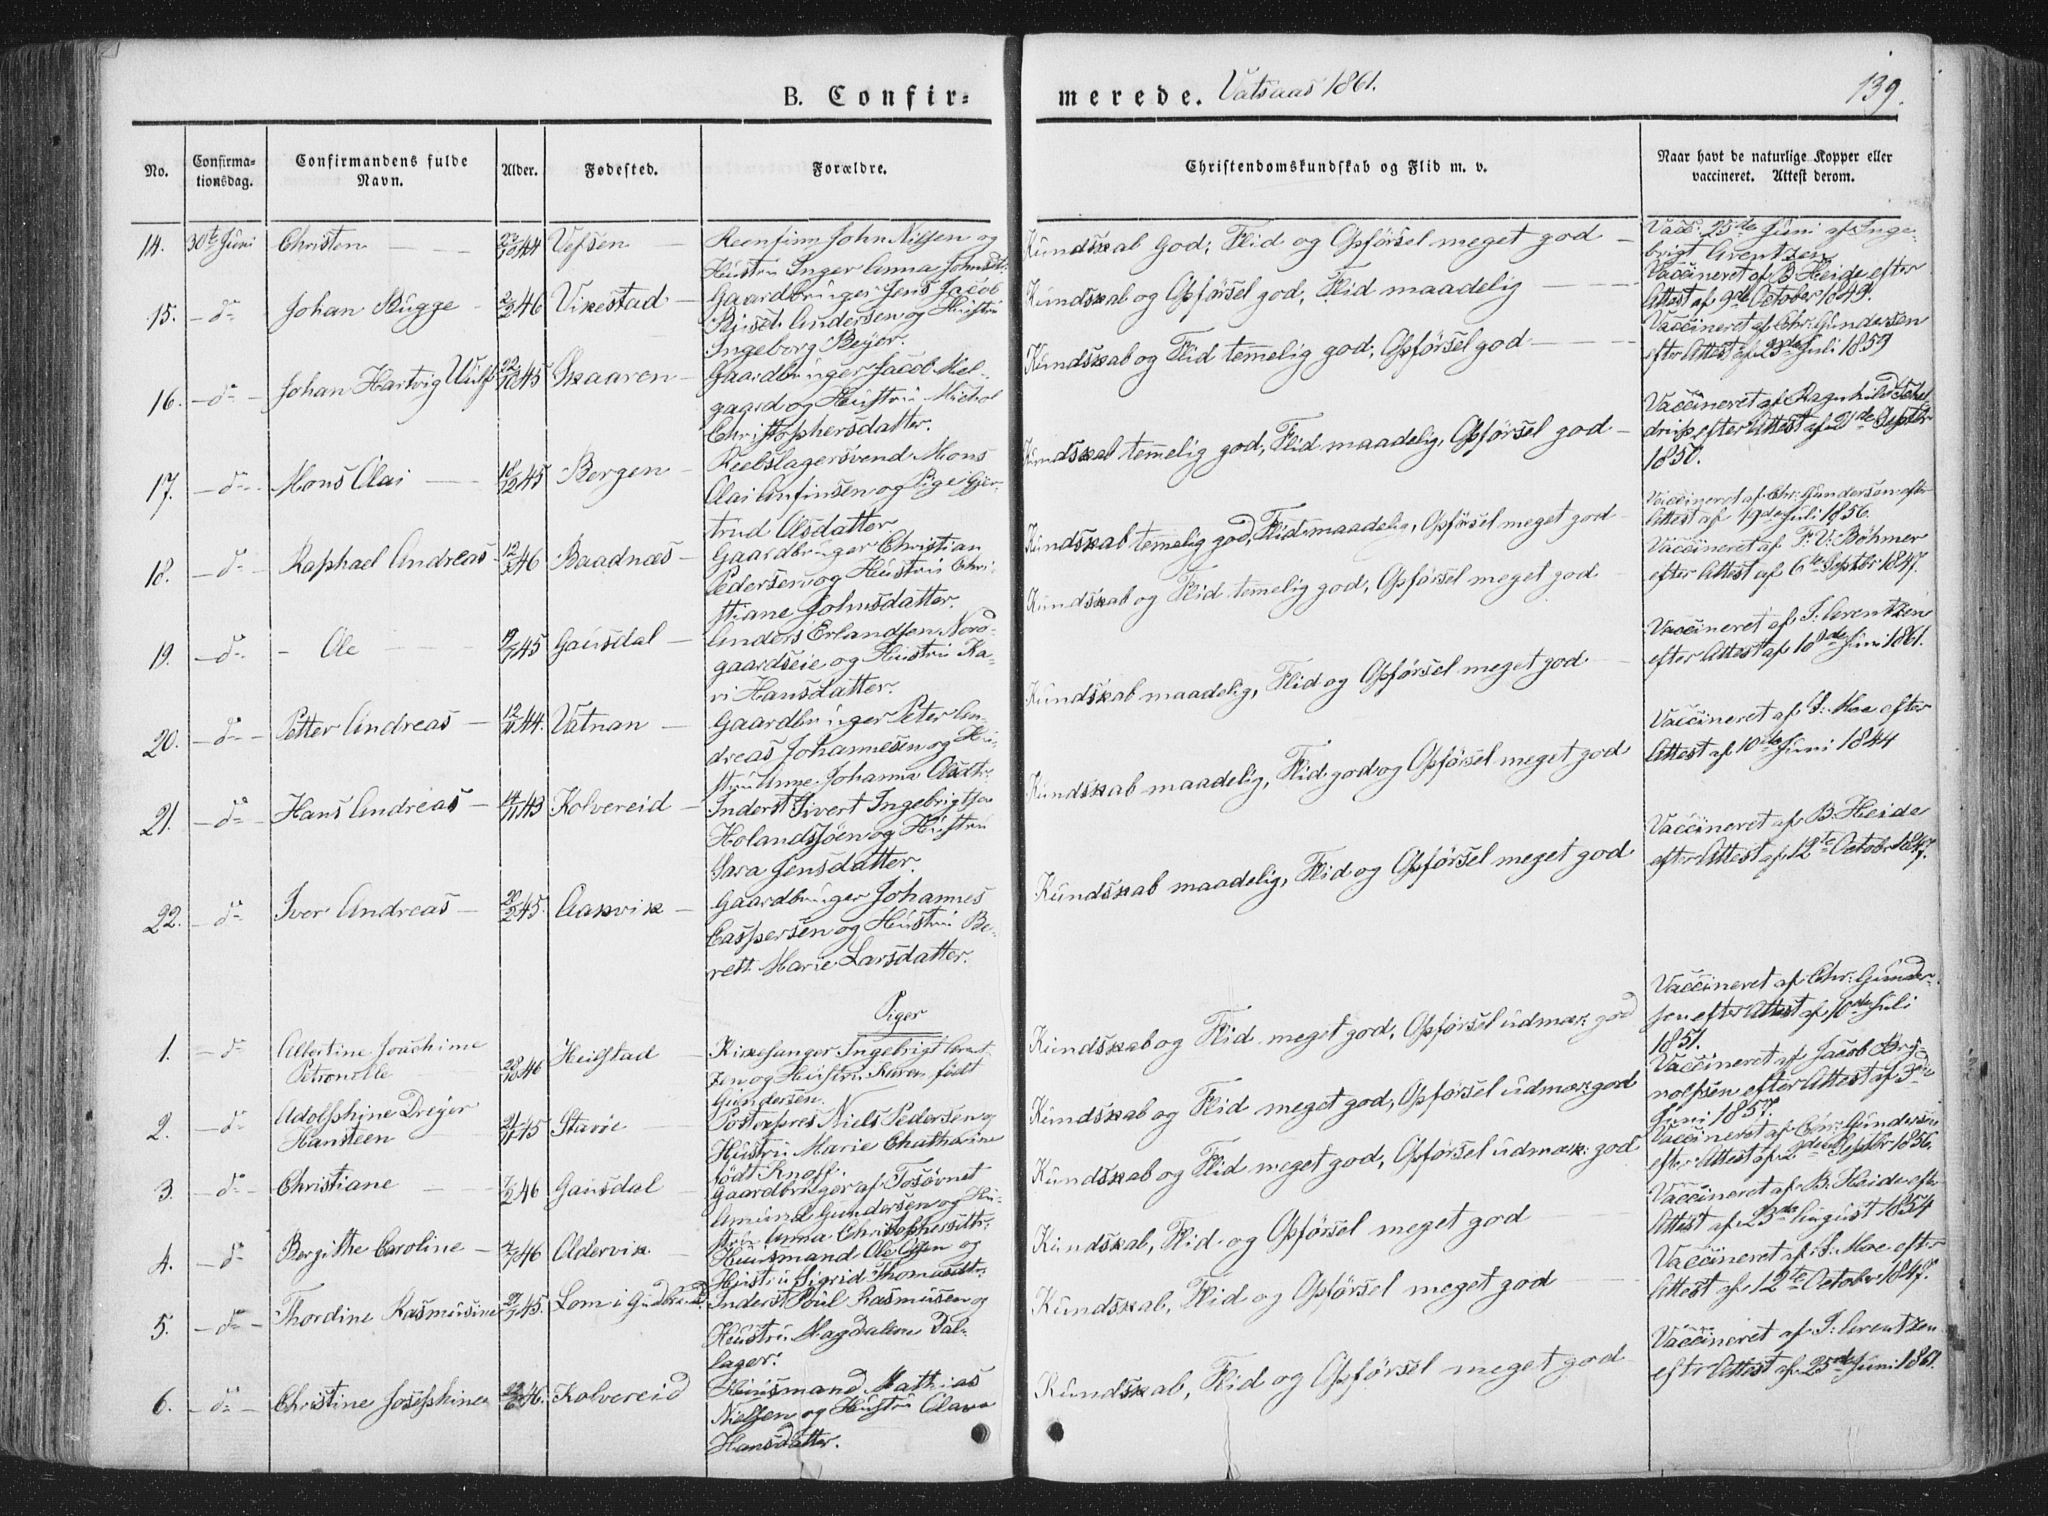 B. Confir-
merede. Vatsaas 1861.
139.
No.
Confirma-
tionsdag.
Confirmandens fulde
Navn.
Alder.
Fødested.
Forældre.
Christendomskundskab og Flid m. v.
Naar havt de naturlige Kopper eller
vaccineret. Attest derom.
14. 30te Juni Christen Vefsen
Reenfinn John Nilsen og
Hustru Inger Anna Johnsdt.
Kundskab God; Flid og Opførsel meget god
Vacc: 25de Juni af Inge-
brigt Arentzen
15. do Johan Bugge 46 Vikestad
Gaardbruger Jens Jacob
Andersen og Hustru
Ingeborg Beÿer.
Kundskab og Opførsel god, Flid maadelig
Vaccineret af B. Heide efter
Attest af 9de October 1849.
16. do Johan Hartvig 45 Skaaren
Gaardbruger Jacob Mel-
gaard og Hustru
Christophersdatter.
Kundskab og Flid temelig god, Opførsel god
Vaccineret af Chr. Gundersen
efter Attest af Juli 1859
17. do Mons Olai 45 Bergen
Reebslagersvend Mons
Olai Anfinsen og Pige Gjer-
trud Olsdatter
Kundskab temelig god, Flid maadelig, Opførsel god
Vaccineret af Ragnhild
efter Attest af 21de Septbr
1850.
18. do Raphael Andreas 46 Baadnæs
Gaardbruger Christian
Pedersen og Hustru Chri-
stiane Johnsdatter.
Kundskab temelig god, Flid maadelig, Opførsel meget god
Vaccineret af Chr: Gundersen efter
Attest af 19de Juli 1856.
19. do Ole 45 Gausdal
Anders Erlandsen Nord-
gaardseie og Hustru Ka-
ri Hansdatter.
Kundskab og Flid temelig god, Opførsel meget god
Vaccineret af F. V. Bøhmer
efter Attest af 6te Septbr 1847.
20. do Petter Andreas 44. Vatnan
Gaardbruger Peter An-
dreas Johannesen og Hu-
stru Anne Johanna Olsdtr.
Kundskab maadelig, Flid og Opførsel meget god
Vaccineret af I. Arentzen
efter Attest af 18de Juni 1861.
21. do Hans Andreas 43 Kolvereid
Inderst Sivert Ingebrigtsen
Holandsjøen og Hustru
Sara Jensdatter.
Kundskab maadelig, Flid god og Opførsel meget god
Vaccineret af I: Moe efter
Attest af 10de Juni 1844
22. do Iver Andreas 45. Aakvik
Gaardbruger Johannes
Caspersen og Hustru Be-
rett Marie Larsdatter.
Kundskab maadelig, Flid og Opførsel meget god
Vaccineret af B. Heide
efter Attest af 12te Octobr 1847.
Piger
1. do Albertine Joachime
Petronelle 46 Heilstad
Kirkesanger Ingebrigt Arent-
zen og Hustru Karen født
Gundersen.
Kundskab og Flid meget god, Opførsel udmær: god
Vaccineret af Chr: Gunder-
sen efter Attest af 10de Juli
1851.
2. do Adolphine Dreÿer
Hansteen 45 Stavøe
Postexpres Niels Pedersen og
Hustru Marie Chatharine
født Knoff.
Kundskab og Flid meget god, Opførsel udmær: god
Vaccineret af Jacob Bry-
nolfsen efter Attest af 3die
Juni 1857.
3. do Christiane 46 Gausdal
Gaardbruger af Tosøvnet
Amund Gundersen og Hu-
stru Anna Christophersdtr.
Kundskab og Flid meget god, Opførsel udmær: god
Vaccineret af Chr: Gundersen
efter Attest af 2den Septbr 1856.
4. do Bergithe Caroline 46 Aldervik
Huusmand Ole Olsen og
Hustru Sigrid Thomasdtr.
Kundskab, Flid og Opførsel meget god
Vaccineret af B: Heide eft
Attest af 23de August 1854
5. do Thordine Rasmusine 45. Lom i Gudbrand.
Inderst Poul Rasmusen og
Hustru Magdalena Dal-
lager.
Kundskab, Flid og Opførsel meget god
Vaccineret af I: Moe efter
Attest af 12te October 1847.
6. do Christine Josephine 46. Kolvereid
Huusmand Mathias
Nielsen og Hustru Olava
Hansdatter.
Kundskab, Flid og Opførsel meget god
Vaccineret af I: Arentzen
efter Attest af 25de Juni 1861.